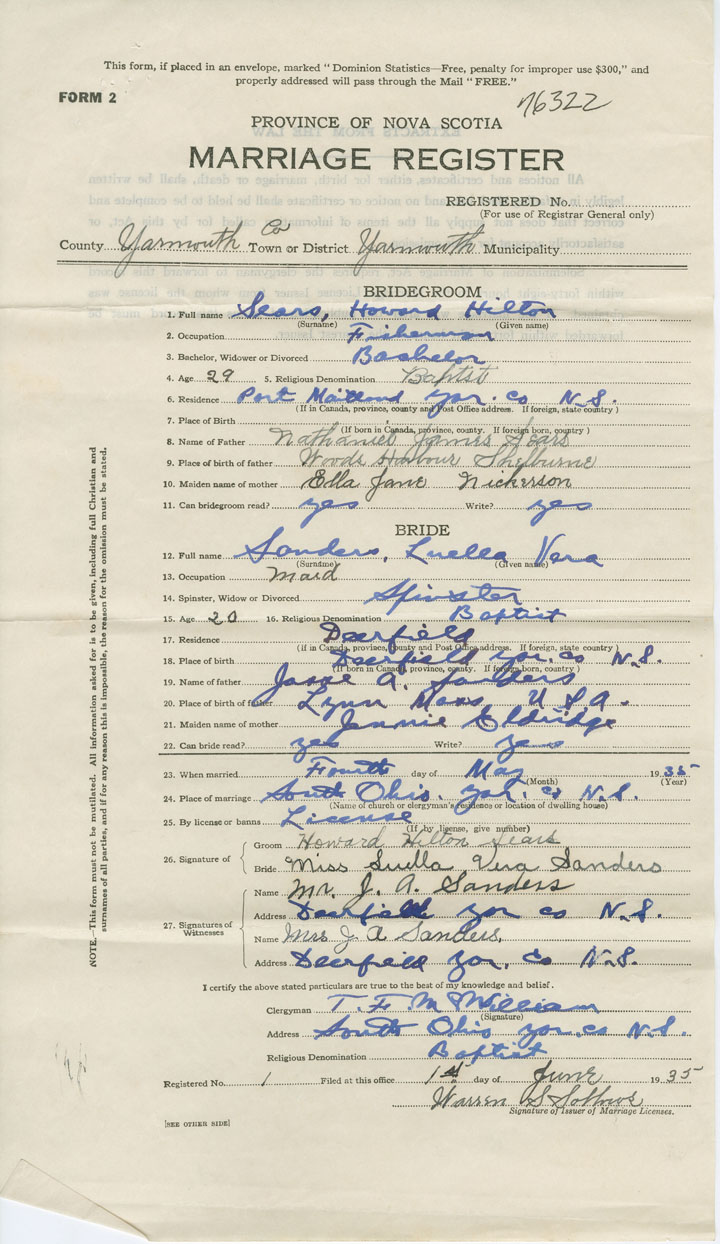 This form, if placed in an envelope, marked "Dominion Statistics—Free, penalty for improper use $300," and
properly addressed will pass through the Mail "FREE."
FORM 2
76322
PROVINCE OF NOVA SCOTIA
MARRIAGE REGISTER
REGISTERED No.
(For use of Registrar General only)
County Yarmouth Co Town or District Yarmouth Municipality
BRIDEGROOM
1. Full name Sears, Howard Hilton
(Surname) (Given name)
2. Occupation Fisherman
3. Bachelor, Widower or Divorced Bachelor
4. Age 29 5. Religious Denomination Baptist
6. Residence Port Maitland Yar. Co N.S.
(If in Canada, province, county and Post Office address. If foreign, state country)
7. Place of Birth
(If born in Canada, province, county. If foreign born, country)
8. Name of Father Nathaniel James Sears
9. Place of birth of father Woods Harbour Shelburne
10. Maiden name of mother Ella Jane Nickerson
11. Can bridegroom read? yes Write? yes
BRIDE
12. Full name Sanders, Luella Vera
(Surname) (Given name)
13. Occupation Maid
14. Spinster, Widow or Divorced Spinster
15. Age 20 16. Religious Denomination Baptist
17. Residence Deerfield
(If in Canada, province, county and Post Office address. If foreign, state country)
18. Place of birth Deerfield Yar. Co N.S.
(If born in Canada, province, county. If foreign born, country)
19. Name of father A. Sanders
20. Place of birth of father Lynn Mass U S A.
21. Maiden name of mother Jennie Eldridge
22. Can bride read? yes Write? yes
23. When married Fourth day of May 1935
(Month) (Year)
24. Place of marriage South Ohio. Yar. Co N.S.
(Name of church or clergyman's residence or location of dwelling house)
25. By license or banns License
(If by license, give number)
26. Signature of
Groom Howard Hilton Sears
Bride Miss Luella Vera Sanders
27. Signatures of Witnesses
Name Mr. J. A. Sanders
Address Deerfield Yar Co N.S.
Name Mrs J A Sanders.
Address Deerfield Yar. Co N.S.
I certify the above stated particulars are true to the best of my knowledge and belief.
Clergyman T. F. McWilliam
(Signature)
Address South Ohio Yar. Co N.S.
Religious Denomination Baptist
Registered No. 1 Filed at this office 1st day of June 1935
Warren S Sollows
Signature of Issuer of Marriage Licenses.
[SEE OTHER SIDE]
NOTE.—This form must not be mutilated. All information asked for is to be given, including full Christian and
surnames of all parties, and if for any reason this is impossible, the reason for the omission must be stated.